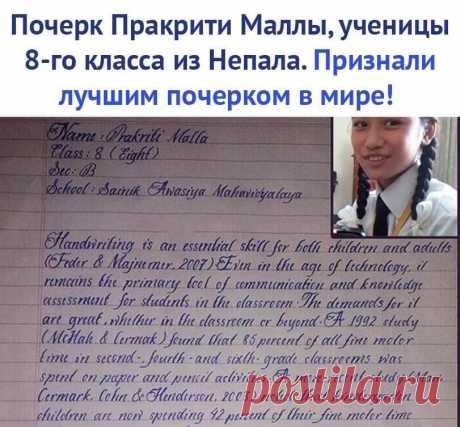 Почерк Пракрити Маллы, ученицы
8-го класса из Непала. Признали
лучшим почерком в мире!
Name : Prakriti Malla
Class : 8 (Eight)
Sec : B
School : Sainik Awasiya Mahavidyalaya
Handwriting is an essential skill for both children and adults
(Feder & Majnemer, 2007) Even in the age of technology, it
remains the primary tool of communication and knowledge
assessment for students in the classroom. The demands for it
are great, whether in the classroom or beyond. A 1992 study
(McHale & Cermak) found that 85 percent of all fine motor
time in second-, fourth- and sixth- grade classrooms was
spent on paper and pencil
Cermark, Cohn & Henderson, 
children are now spending 42 percent of their fine motor time
postila.ru